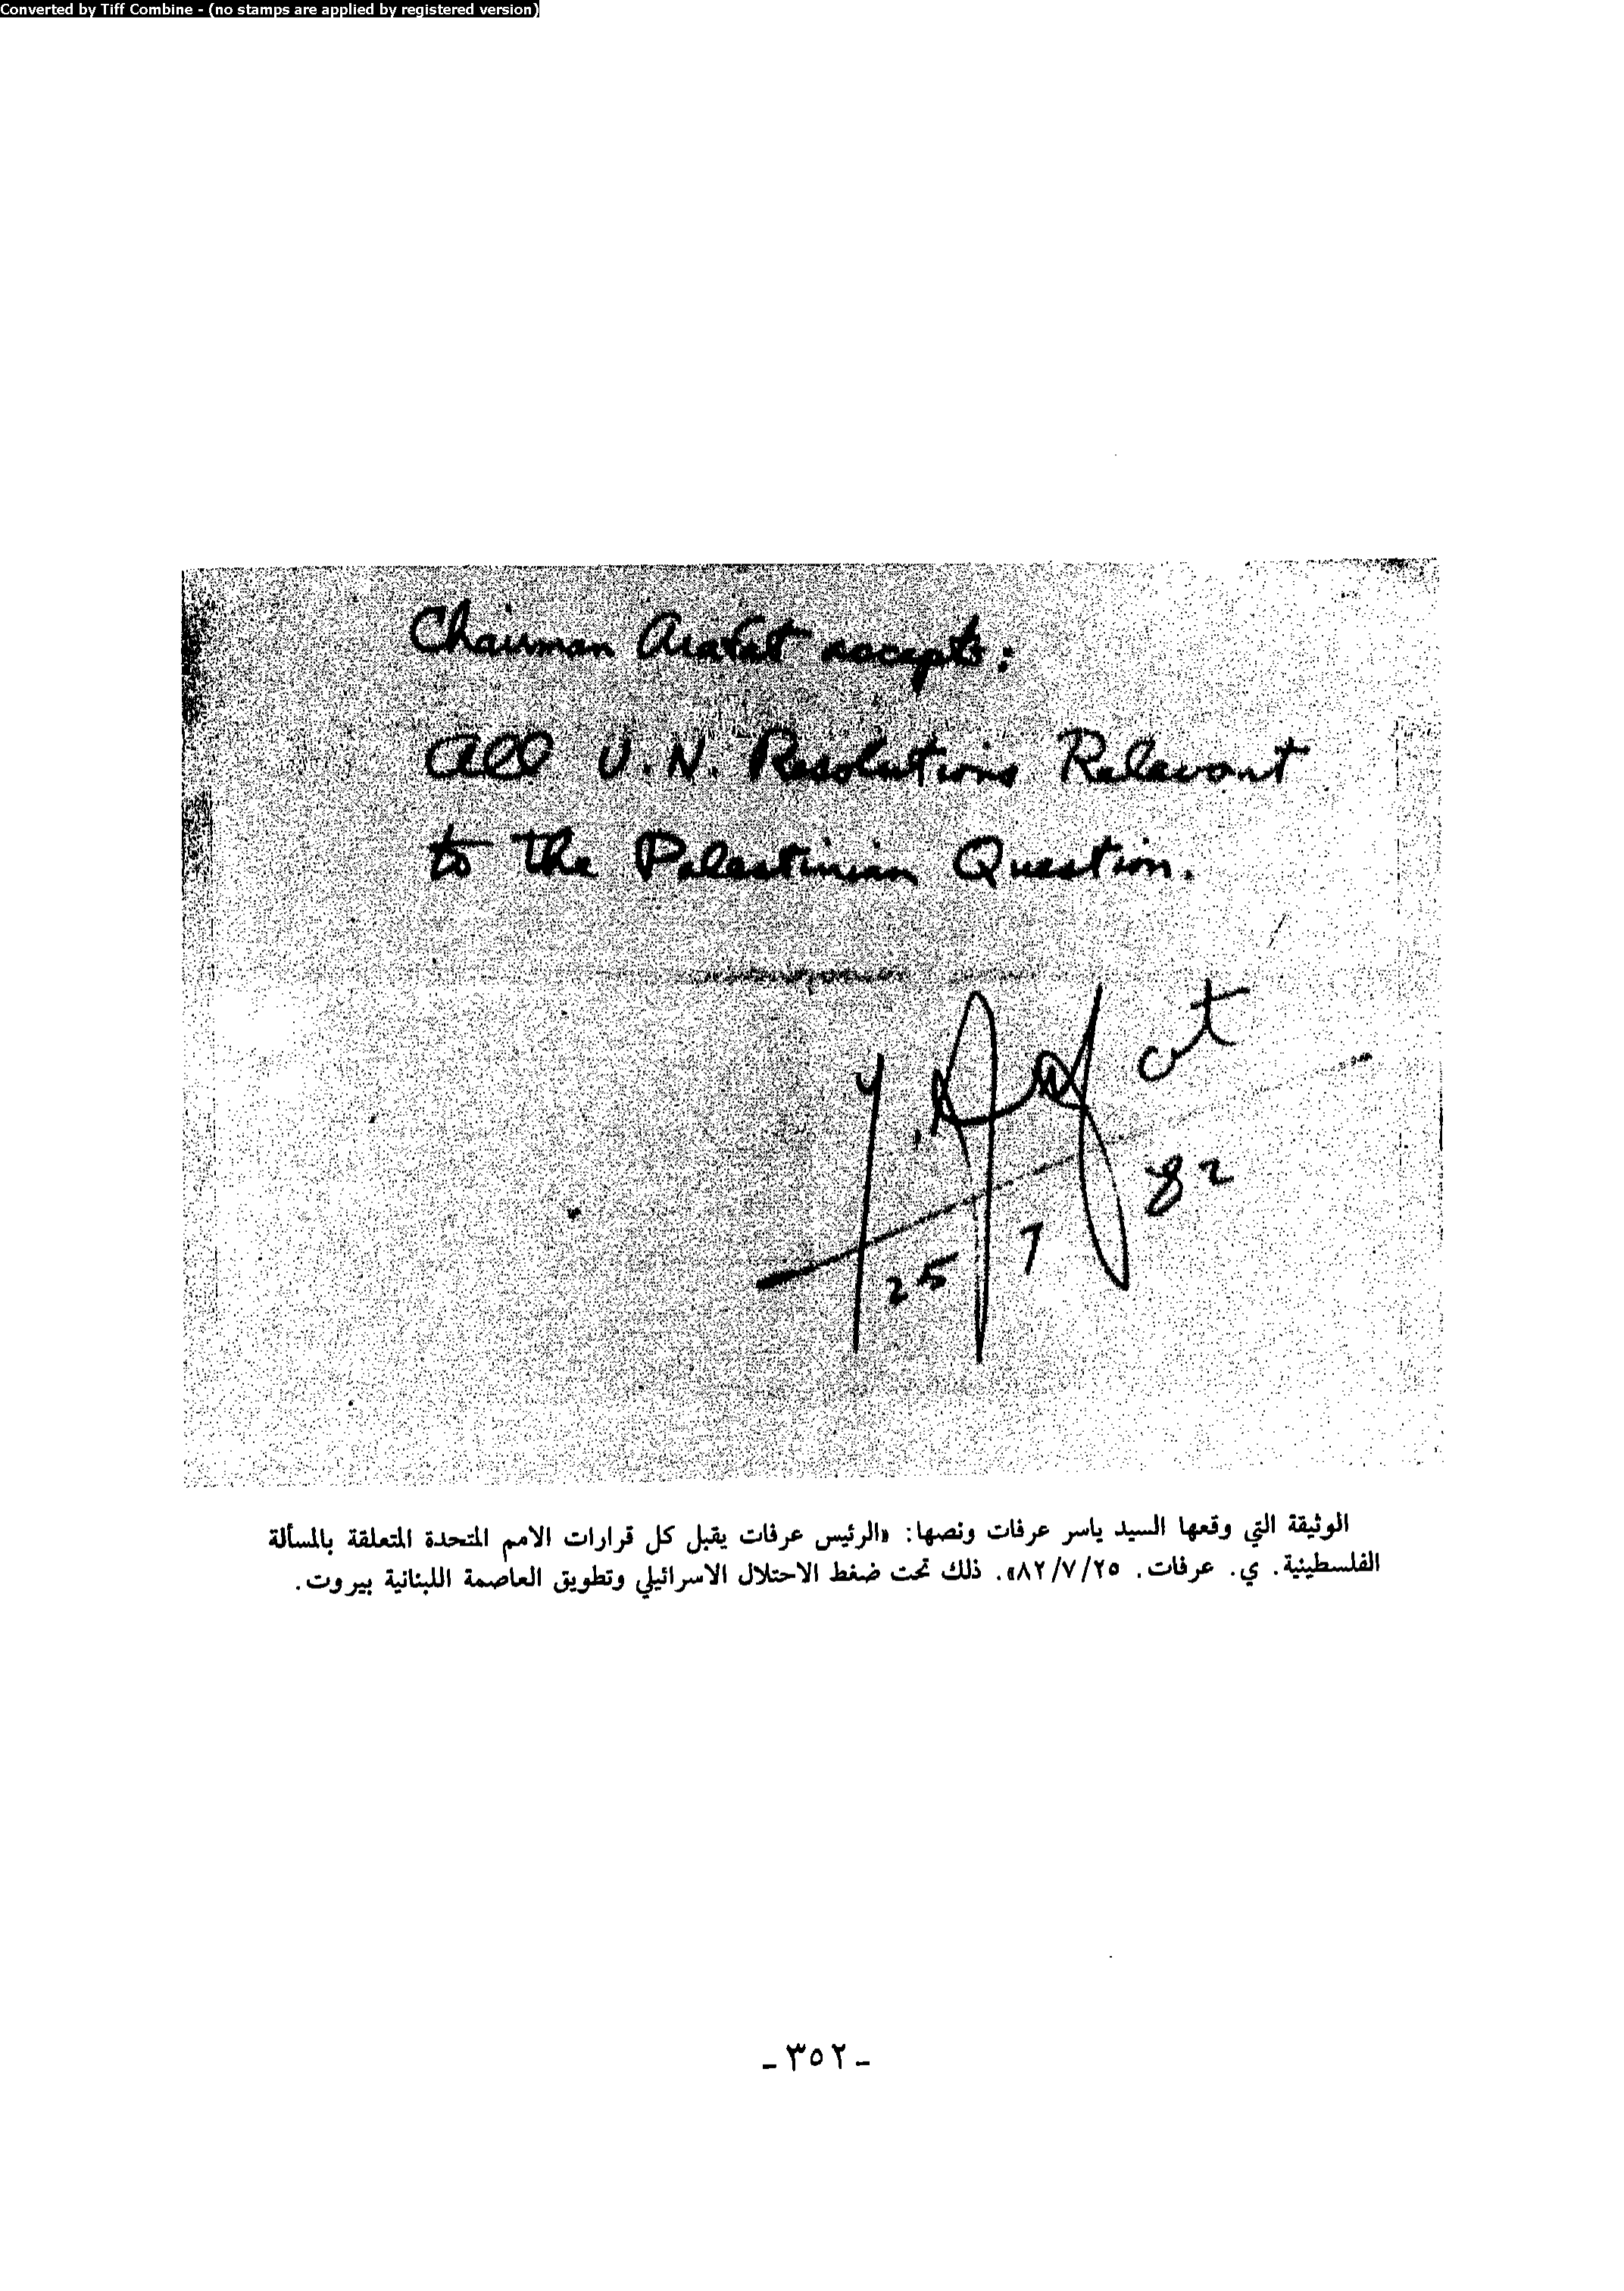 Converted by Tiff Combine - (no stamps are applied by registered version)
Chairman Arafat accepts:
all U.N. Resolutions Relevant
to the Palestinian Question.
Y. Arafat
25 7 82
الوثيقة التي وقعها السيد ياسر عرفات ونصها: «الرئيس عرفات يقبل كل قرارات الامم المتحدة المتعلقة بالمسألة
الفلسطينية. ي. عرفات. ٨٢/٧/٢٥». ذلك تحت ضغط الاحتلال الاسرائيلي وتطويق العاصمة اللبنانية بيروت.
- ٣٥٢ -